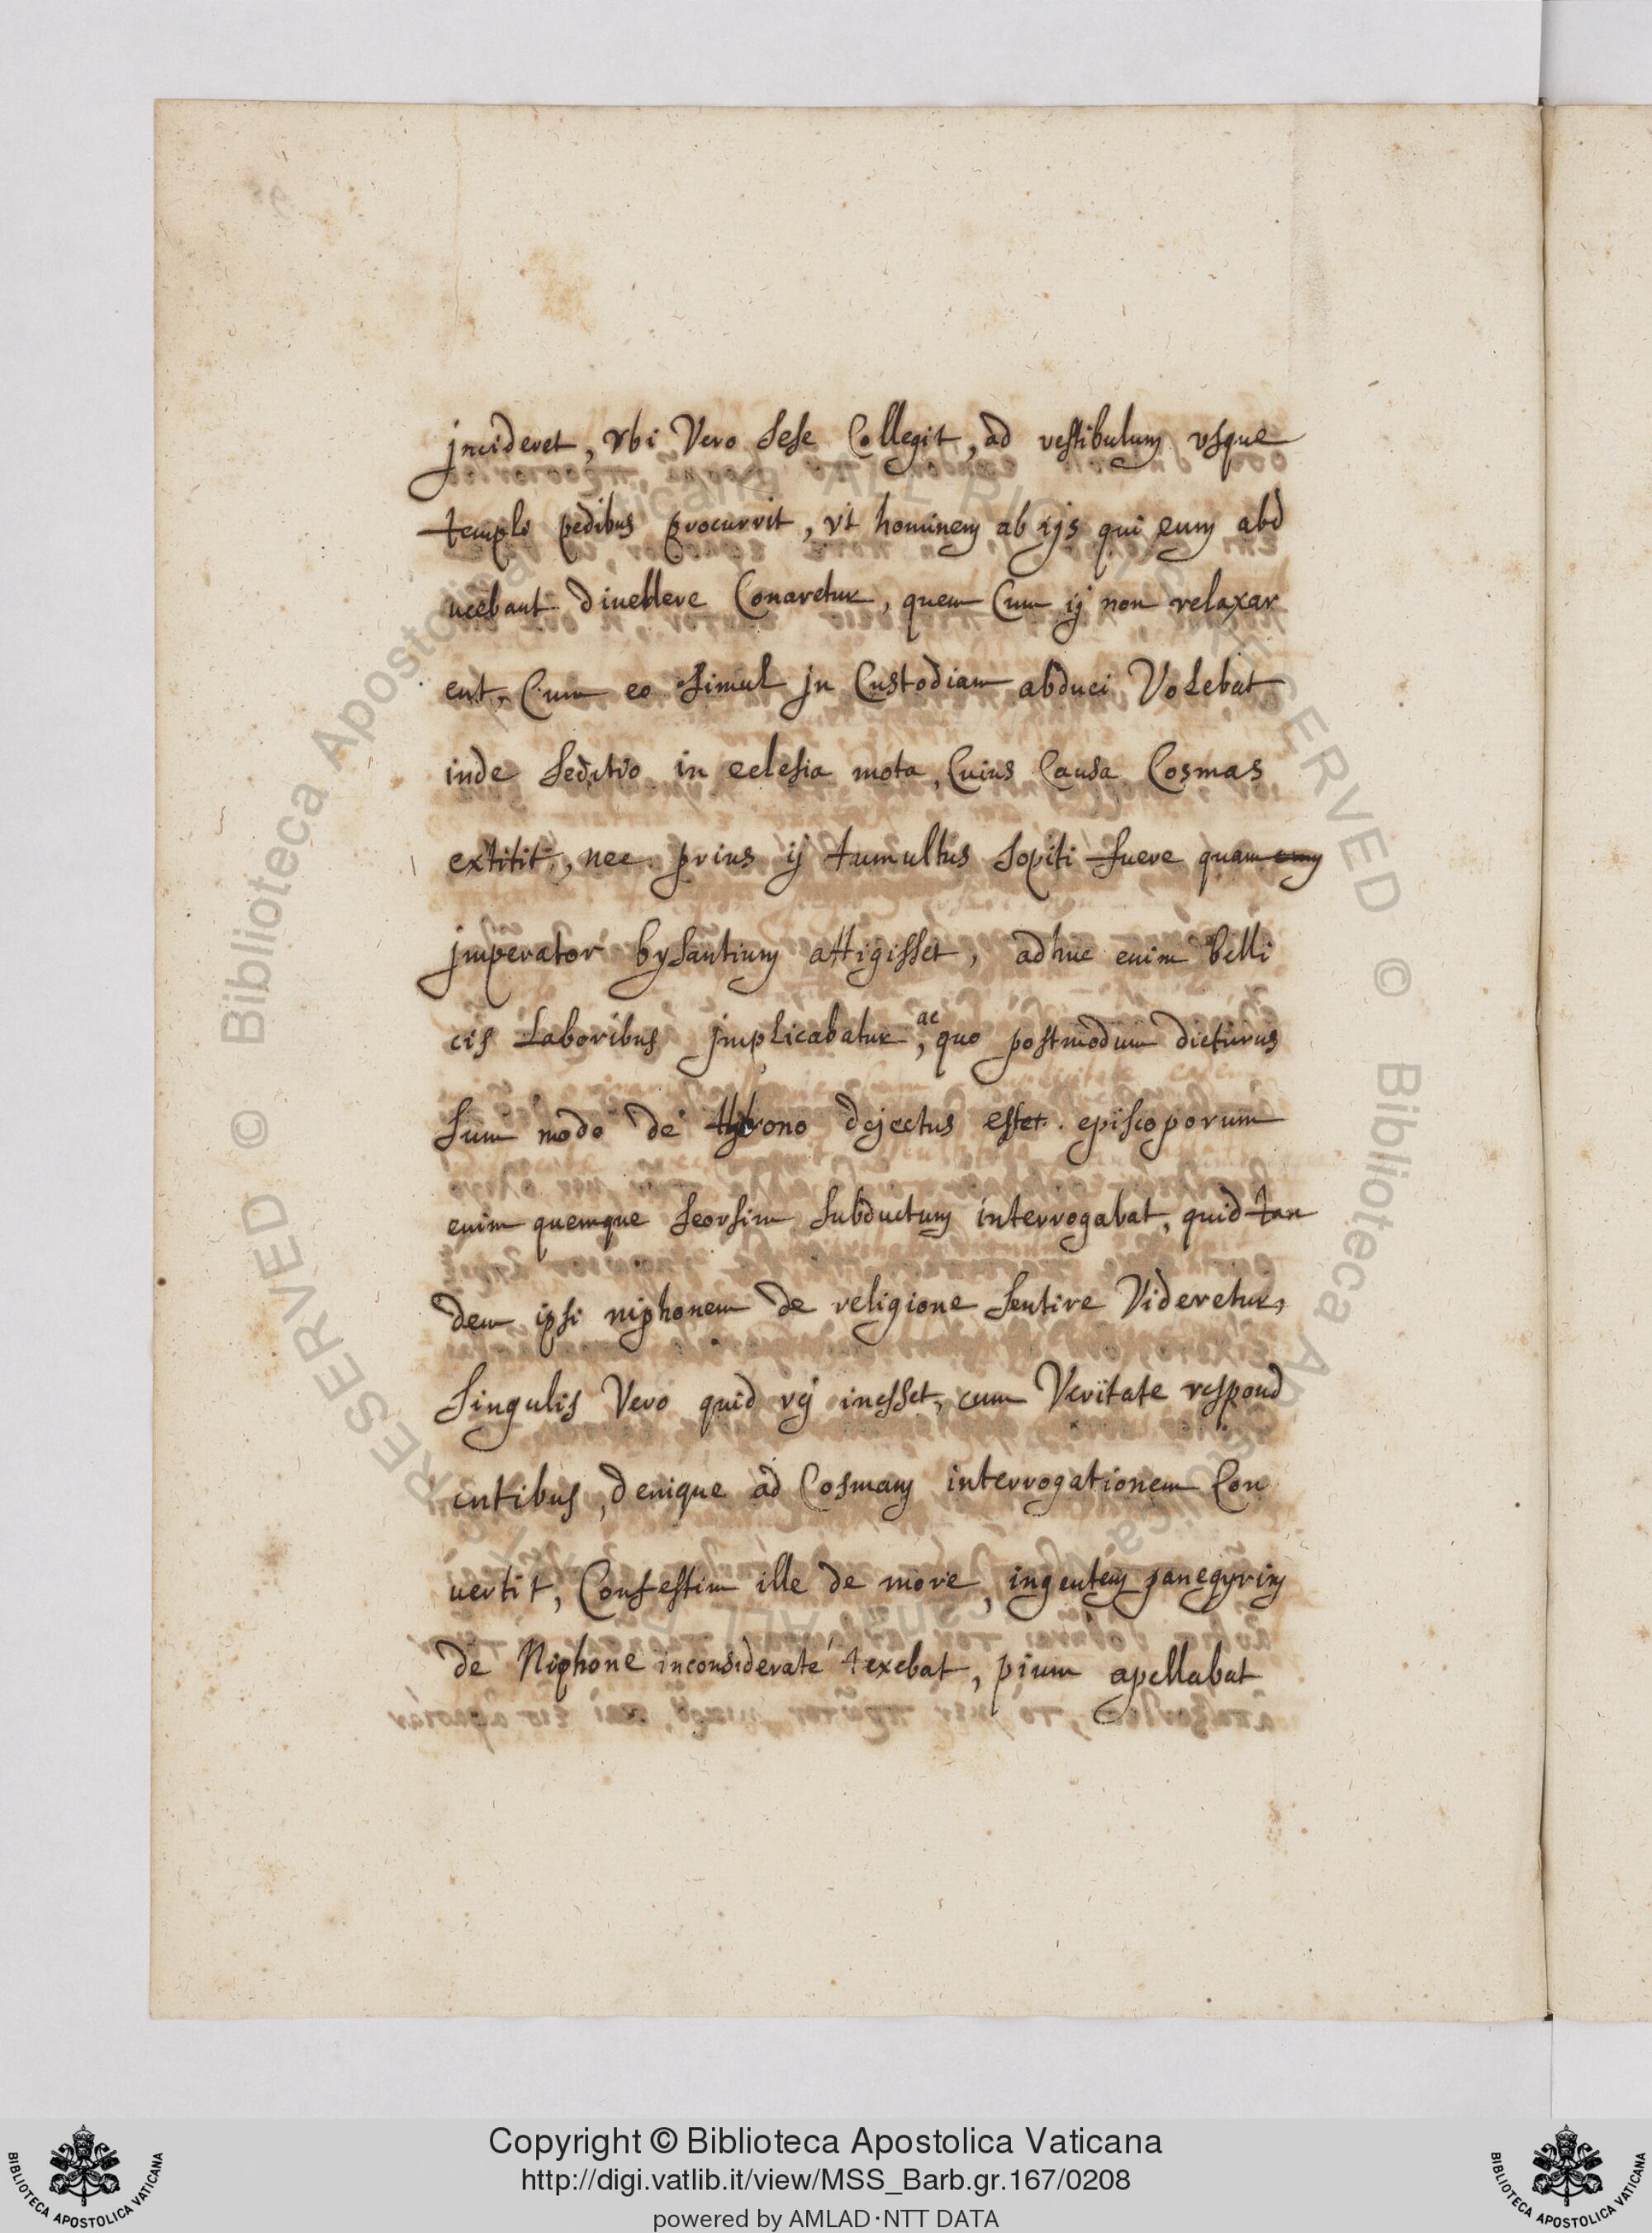 jncideret, vbi Vero sese Collegit, ad vestibulum vsque
templi pedibus procurrit, vt hominem ab ijs qui eum abd
ucebant diuellere Conaretur, quem Cum ij non relaxar
ent, Cum eo simul jn Custodiam abduci Volebat
inde seditio in eclesia mota, Cuius Causa Cosmas
extitit, nec prius ij tumultus sopiti fuere quam
jmperator bysantium attigisset, adhuc enim belli
cis Laboribus jmplicabatur, ac quo postmodum dicturus
sum modo de throno dejectus esset. episcoporum
enim quemque seorsim subductum interrogabat, quid tan
dem ipsi niphonem de religione sentire Videretur,
singulis Vero quid rej inesset, cum Veritate respond
entibus, denique ad Cosmam interrogationem Con
uertit, Confestim ille de more, ingentem panegyrim
de Niphone inconsideraté texebat, pium apellabat
Copyright © Biblioteca Apostolica Vaticana
http://digi.vatlib.it/view/MSS_Barb.gr.167/0208
powered by AMLAD·NTT DATA